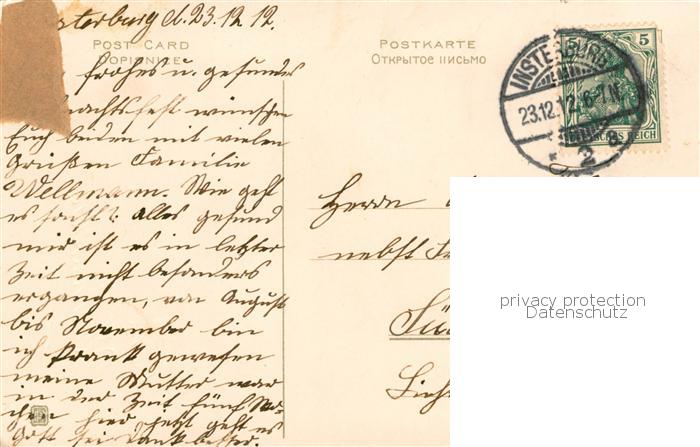 sterburg d. 23.12.12.
POST CARD
DOPISNICE
POSTKARTE
Открытое письмо
frohes u. gesundes
nachtsfest wünschen
Euch beiden mit vielen
Grüßen Familie
Wellmann. Wie geht
es sonst? alles gesund
mir ist es in letzter
Zeit nicht besonders
ergangen, von August
bis November bin
ich krank gewesen
meine Mutter war
in der Zeit fünf Wo-
chen hier jetzt geht es
Gott sei Dank besser.
INSTERBURG
23.12.12. 6-7 N
2 B
5 5
DEUTSCHES REICH
Herrn
nebst
privacy protection
Datenschutz